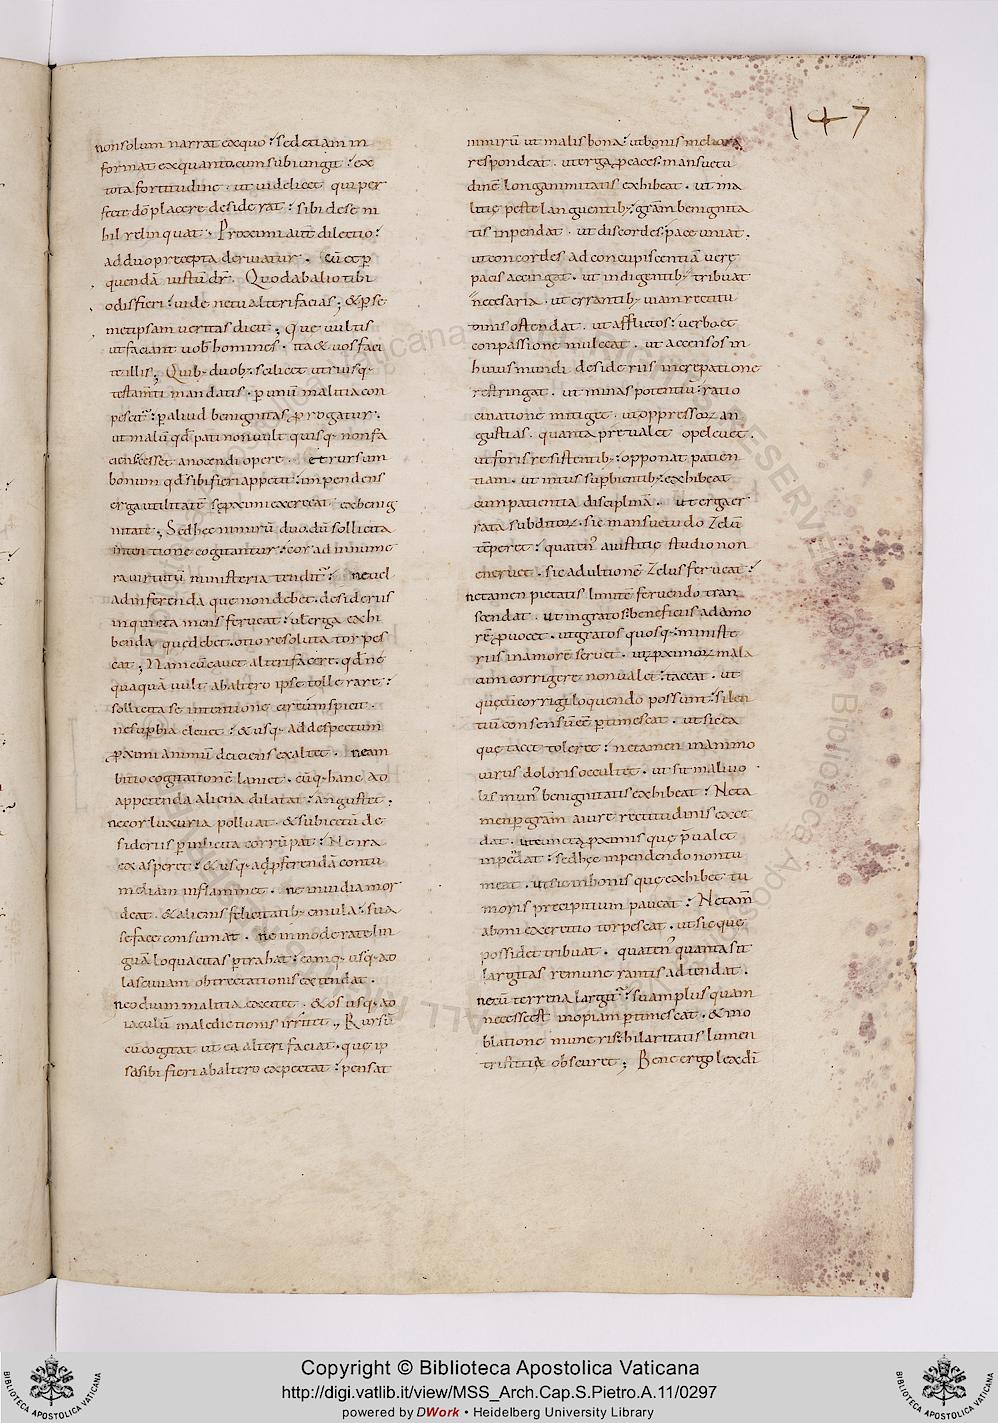 147
non solum narrat ex quo; sed etiam in
format ex quanto. cum subiungit; ex
tota fortitudine. ut uidelicet qui per
fecte dō placere desiderat; sibi de se ni
hil relinquat. Proximi autē dilectio;
ad duo precepta deriuatur. cū et p
quendā iustū dr̄. Quod ab alio tibi
odis fieri; uide ne tu alteri facias; & p se
metipsam ueritas dicit; que uultis
ut faciant uob homines. ita & uos faci
te illis; Quib; duob; scilicet utriusq;
testamti mandatis. p unū malitia con
pescit; p aliud benignitas prorogatur.
ut malū qd pati non uult quisq; non fa
ciens cesset a nocendi opere. et rursum
bonum qd sibi fieri appetit; inpendens
erga utilitatē se pximi exerceat ex benig
nitate; Sed hec nimirū duo. dū sollicita
intentione cogitantur; cor ad innume
ra uirtutū ministeria tenditur; ne uel
ad inferenda que non debet. desideriis
inquieta mens ferueat; uł erga exhi
benda que debet. otio resoluta torpes
cat; Nam cū cauet alteri facere. qd ne
quaquā uult ab altero ipse tollerare;
sollicita se intentione circumspicit.
ne supbia eleuet; & usq; ad despectum
proximi animū deiciens exaltet. ne am
bitio cogitationē laniet. cūq; hanc ad
appetenda aliena dilatat; angustet.
ne cor luxuria polluat. & subiectū de
sideriis p inlicita corrūpat; Ne ira
exasperet; & usq; ad pferendā contu
meliam inflammet. ne inuidia mor
deat. & alienis felicitatib; emula; sua
se face consumat. ne inmoderate lin
guā loquacitas ptrahat; eamq; usq; ad
lasciuiam obtrectationis extendat.
ne odium malitia excitet. & os usq; ad
iaculū maledictionis irritet; Rursū
cū cogitat ut ea alteri faciat. que ip
sa sibi fieri ab altero expectat; pensat
nimirū ut malis bona; ut bonis meliora
respondeat. ut erga peaces; mansuetu
dinē longanimitatis exhibeat. ut ma
litię peste languentib; gram benignita
tis inpendat. ut discordes; pace uniat.
ut concordes ad concupiscentiā uerę
pacis accingat. ut indigentib; tribuat
necesaria. ut errantib; uiam rectitu
dinis ostendat. ut afflictos; uerbo et
conpassione mulceat. ut accensos in
huius mundi desideriis increpatione
restringat. ut minas potentiū; ratio
cinatione mitiget. ut oppressorum an
gustias. quanta preualet ope leuet.
ut foris resistentib; opponat patien
tiam. ut intus supbientib; exhibeat
cum patientia disciplinā. ut erga er
rata subditorum. sic mansuetudo zelū
tēperet; quaten' a iustitię studio non
eneruet. sic ad ultionē zelus ferueat;
ne tamen pietatis limitē feruendo tran
scendat. ut ingratos; beneficiis ad amo
rē prouocet. ut gratos quosq; ministe
riis in amore seruet. ut proximorum mala
cum corrigere non ualet; taceat. ut
que cū corrigi loquendo possunt; silen
tiū consensū eē ptimescat. ut sic ea
que tacet toleret; ne tamen in animo
uirus doloris occultet. ut sic maliuo
lis mun' benignitatis exhibeat; Ne ta
men p gram a iure rectitudinis exce
dat. ut cuncta proximis que pualet
inpendat; sed hec inpendendo non tu
meat. ut sic in bonis que exhibet tu
moris precipitium paueat; Ne tam̄
a boni exercitio torpescat. ut sic que
possidet tribuat. quaten' quanta sit
largitas remunerantis adtendat.
ne cū terrena largitur; suam plus quam
necesse est inopiam ptimescat. & in o
blatione muneris; hilaritatis lumen
tristitia obscuret; Bene ergo lex di
Copyright © Biblioteca Apostolica Vaticana
http://digi.vatlib.it/view/MSS_Arch.Cap.S.Pietro.A.11/0297
powered by DWork • Heidelberg University Library
BIBLIOTECA APOSTOLICA VATICANA
BIBLIOTECA APOSTOLICA VATICANA